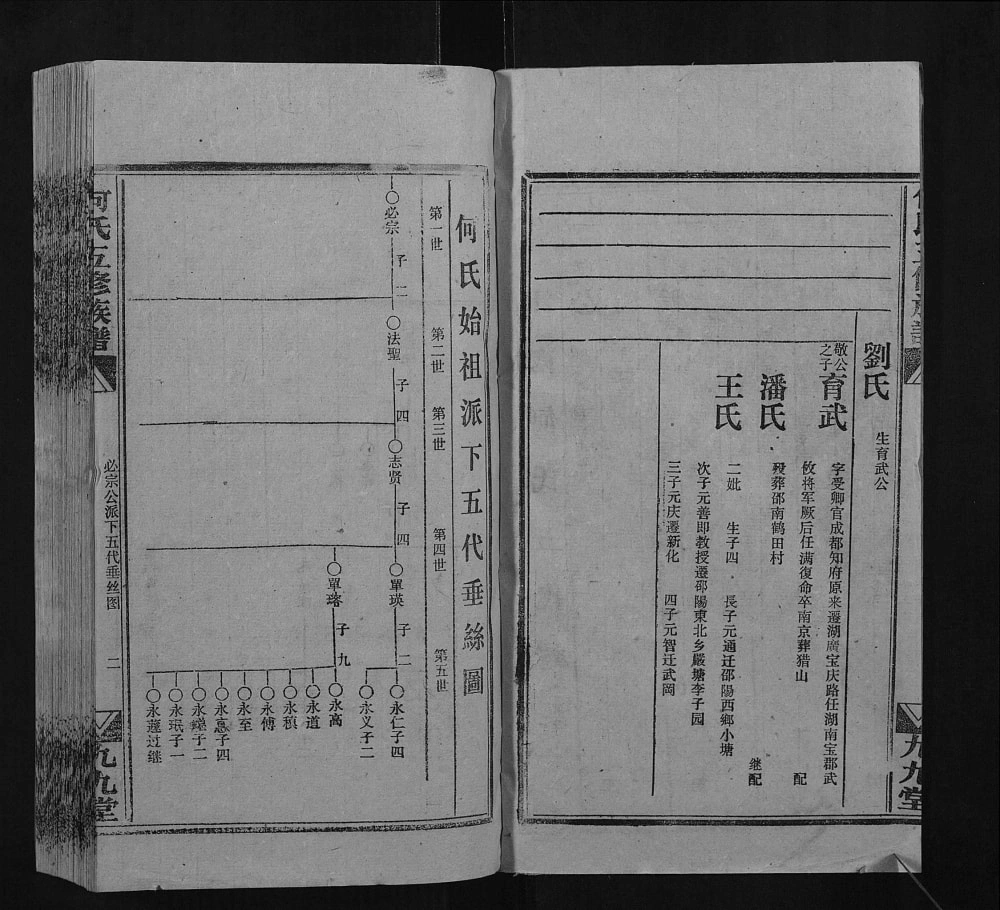 劉氏
生育武公
敬公之子
育武
字受卿官成都知府原来遷湖廣宝庆路任湖南宝郡武
攸将军厥后任满復命卒南京葬猎山
配
潘氏
殁葬邵南鹤田村
继配
王氏
二妣 生子四 長子元通迁邵陽西鄉小塘
次子元善即教授遷邵陽東北乡嚴塘李子园
三子元庆遷新化 四子元智迁武岡
九九堂
何氏始祖派下五代垂絲圖
第一世
第二世
第三世
第四世
第五世
必宗 子二
法聖 子四
志贤 子四
單瑛 子二
單瑢 子九
永仁子四
永义子二
永高
永道
永稹
永傅
永至
永惪子四
永鏜子二
永珉子一
永蓮过继
何氏五修族譜
必宗公派下五代垂丝图
二
九九堂